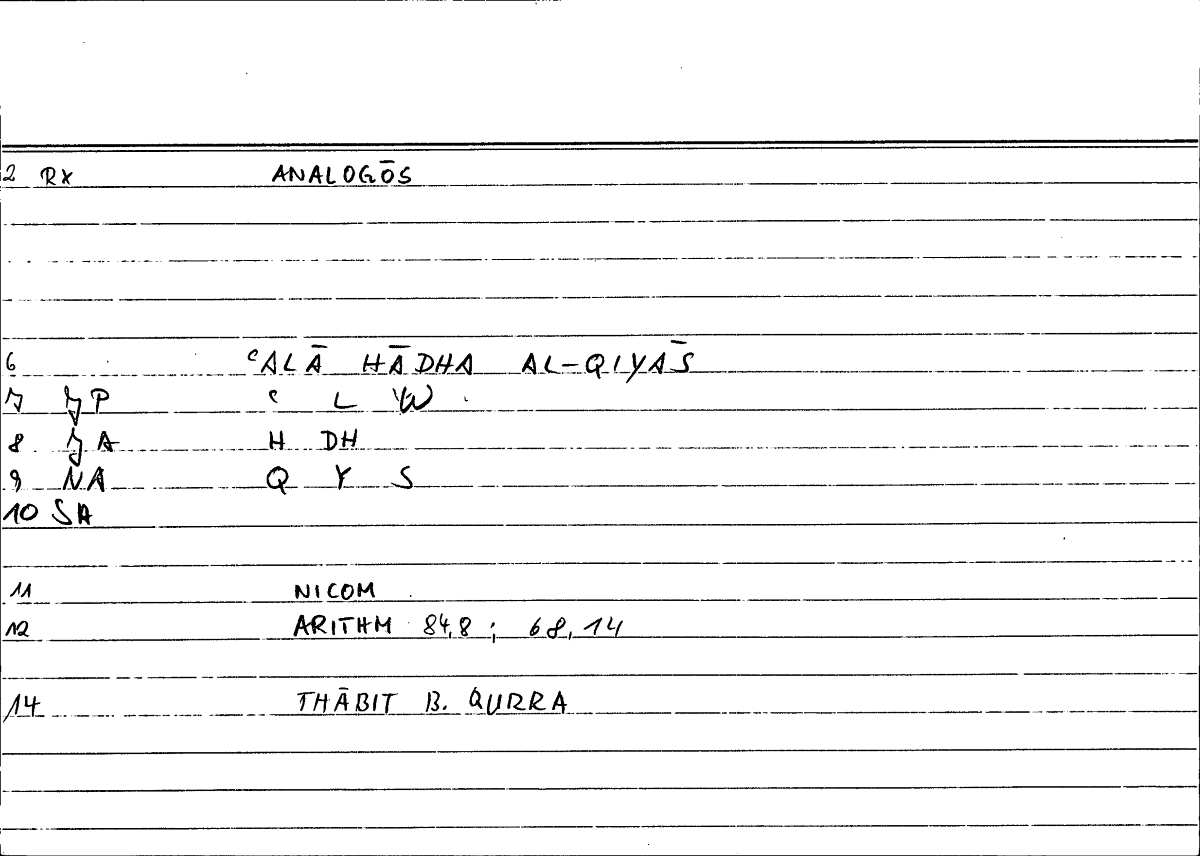 2 RX ANALOGŌS
6 ʿALĀ HĀDHA AL-QIYĀS
7 JP ʿ L W
8 JA H DH
9 NA Q Y S
10 SA
11 NICOM
12 ARITHM 84,8 ; 68,14
14 THĀBIT B. QURRA